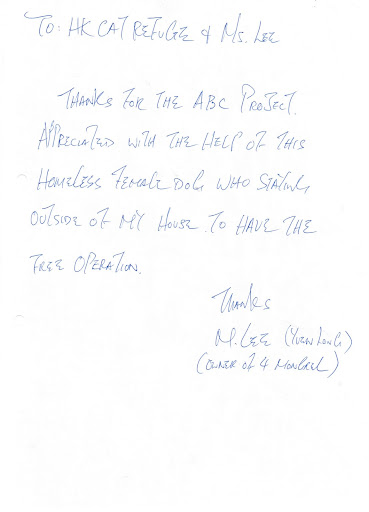 TO: HK CAT REFUGEE & MS. LEE
THANKS FOR THE ABC PROJECT.
APPRECIATED WITH THE HELP OF THIS
HOMELESS FEMALE DOG WHO STAYING
OUTSIDE OF MY HOUSE. TO HAVE THE
FREE OPERATION.
THANKS
M. LEE (YUEN LONG)
(OWNER OF 4 MONGREL)